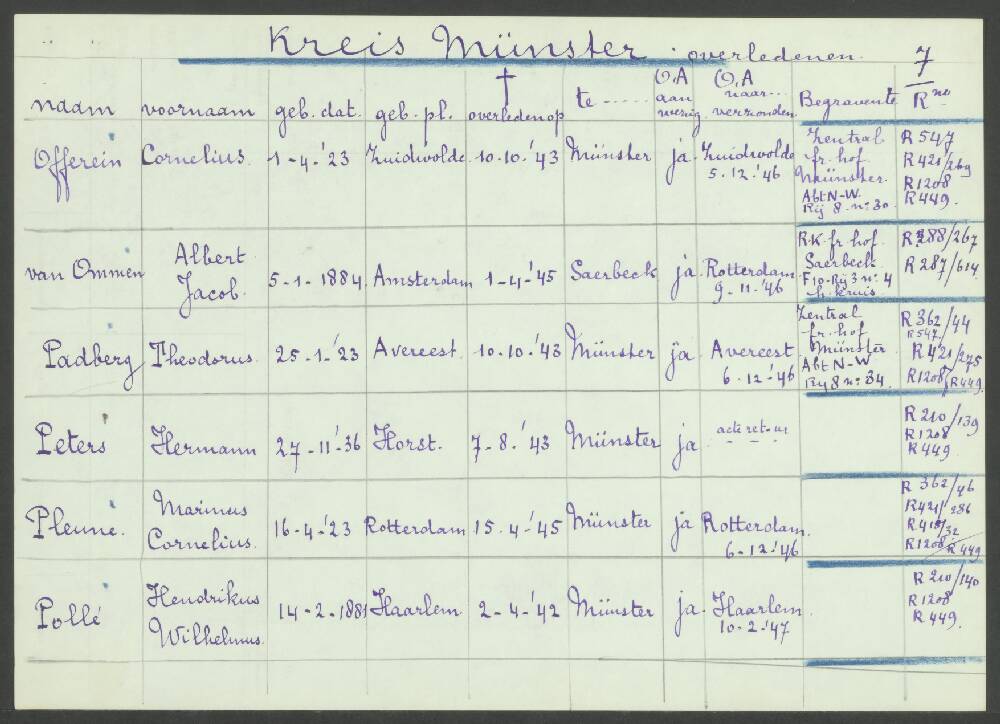 Kreis Münster . overledenen. 7
naam voornaam geb. dat. geb. pl. † overleden op te ...... O,A aan wezig O,A naar... verzonden Begravente R no
Offerein Cornelius. 1-4-'23 Zuidwolde 10-10-'43 Münster ja Zuidwolde 5.12.'46
Zentral
fr. hof.
Münster.
Abt N-W.
Rij 8. no 30.
R 547
R 421/269
R 1208
R 449.
van Ommen Albert Jacob. 5-1-1884 Amsterdam 1-4-'45 Saerbeck ja Rotterdam 9-11-'46
R.K. fr. hof.
Saerbeck
F 10-Rij 3 no 4
h. kruis
R 288/267
R 287/614
Padberg Theodorus. 25-1-'23 Avereest. 10-10-'43 Münster ja Avereest 6-12-'46
Zentral
fr. hof
Münster
Abt N-W
Rij 8 no 34.
R 362/44
R 547/
R 421/275
R 1208/R 449.
Peters Hermann 27-11-'36 Horst. 7-8-'43 Münster ja acte ret-ur
R 210/139
R 1208
R 449
Pleune. Marinus Cornelius. 16-4-'23 Rotterdam 15-4-'45 Münster ja Rotterdam. 6-12-'46
R 362/46
R 421/286
R 418/32
R 1208/R 449
Pollé Hendrikus Wilhelmus. 14-2-1881 Haarlem 2-4-'42 Münster ja. Haarlem. 10-2-'47
R 210/140
R 1208
R 449.